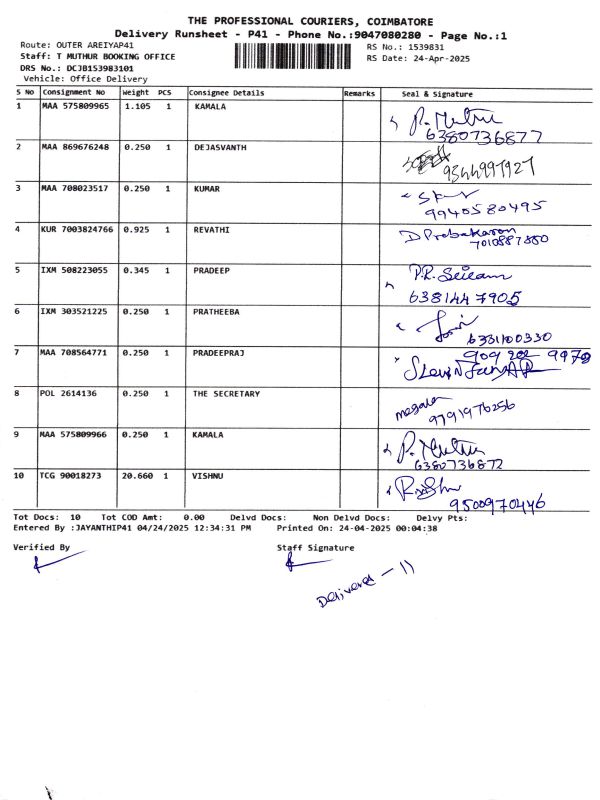 THE PROFESSIONAL COURIERS, COIMBATORE
Delivery Runsheet - P41 - Phone No.:9047080280 - Page No.:1
Route: OUTER AREIYAP41 RS No.: 1539831
Staff: T MUTHUR BOOKING OFFICE RS Date: 24-Apr-2025
DRS No.: DCJB153983101
Vehicle: Office Delivery
S No Consignment No Weight PCS Consignee Details Remarks Seal & Signature
1 MAA 575809965 1.105 1 KAMALA P. Muthu
6380736877
2 MAA 869676248 0.250 1 DEJASVANTH
9344997927
3 MAA 708023517 0.250 1 KUMAR
9940580495
4 KUR 7003824766 0.925 1 REVATHI D Prabakaran
7010887880
5 IXM 508223055 0.345 1 PRADEEP P.R. Sriram
6381447905
6 IXM 303521225 0.250 1 PRATHEEBA
6331100330
7 MAA 708564771 0.250 1 PRADEEPRAJ 909 202 9979
8 POL 2614136 0.250 1 THE SECRETARY
9791976256
9 MAA 575809966 0.250 1 KAMALA P. Muthu
6380736872
10 TCG 90018273 20.660 1 VISHNU
9500970446
Tot Docs: 10 Tot COD Amt: 0.00 Delvd Docs: Non Delvd Docs: Delvy Pts:
Entered By :JAYANTHIP41 04/24/2025 12:34:31 PM Printed On: 24-04-2025 00:04:38
Verified By Staff Signature
Delivered - 11